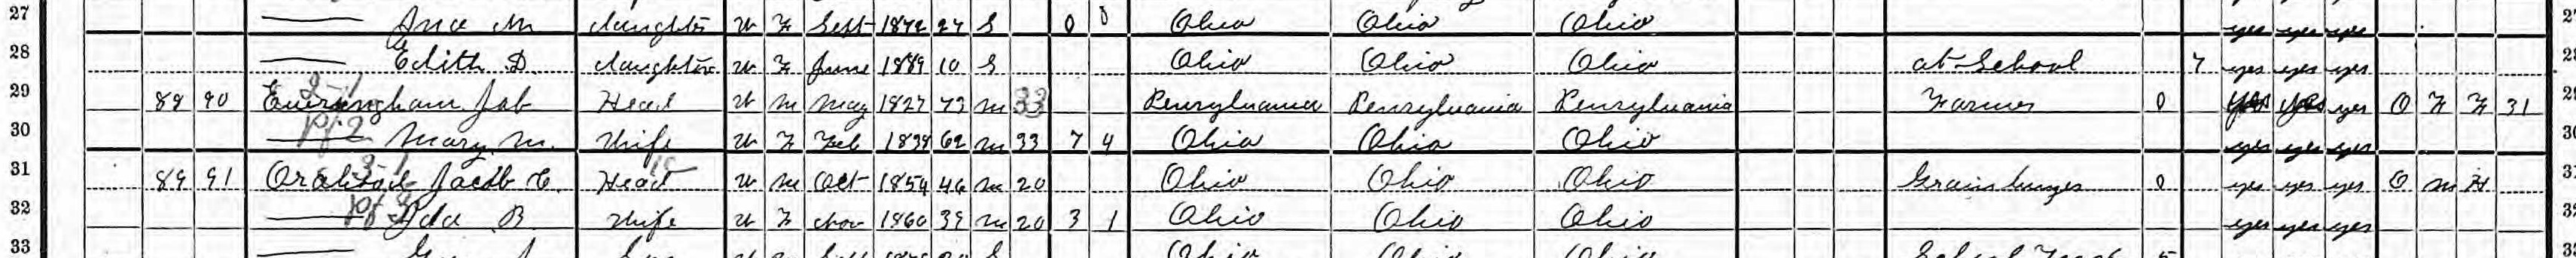 27 —— M daughter W F Sept 1872 27 S 0 0 Ohio Ohio Ohio yes yes yes 27
28 —— Edith D. daughter W F June 1889 10 S Ohio Ohio Ohio at School 7 yes yes yes 28
29 88 90 Job Head W M May 1827 73 M 33 Pennsylvania Pennsylvania Pennsylvania Farmer 0 yes yes yes O F F 31 29
30 —— Mary M. Wife W F Feb 1838 62 M 33 7 4 Ohio Ohio Ohio yes yes yes 30
31 89 91 Jacob C. Head W M Oct 1854 46 M 20 Ohio Ohio Ohio Grain buyer 0 yes yes yes O M H 31
32 —— Ada B. Wife W F Nov 1860 39 M 20 3 1 Ohio Ohio Ohio yes yes yes 32
33 Ohio Ohio Ohio 33